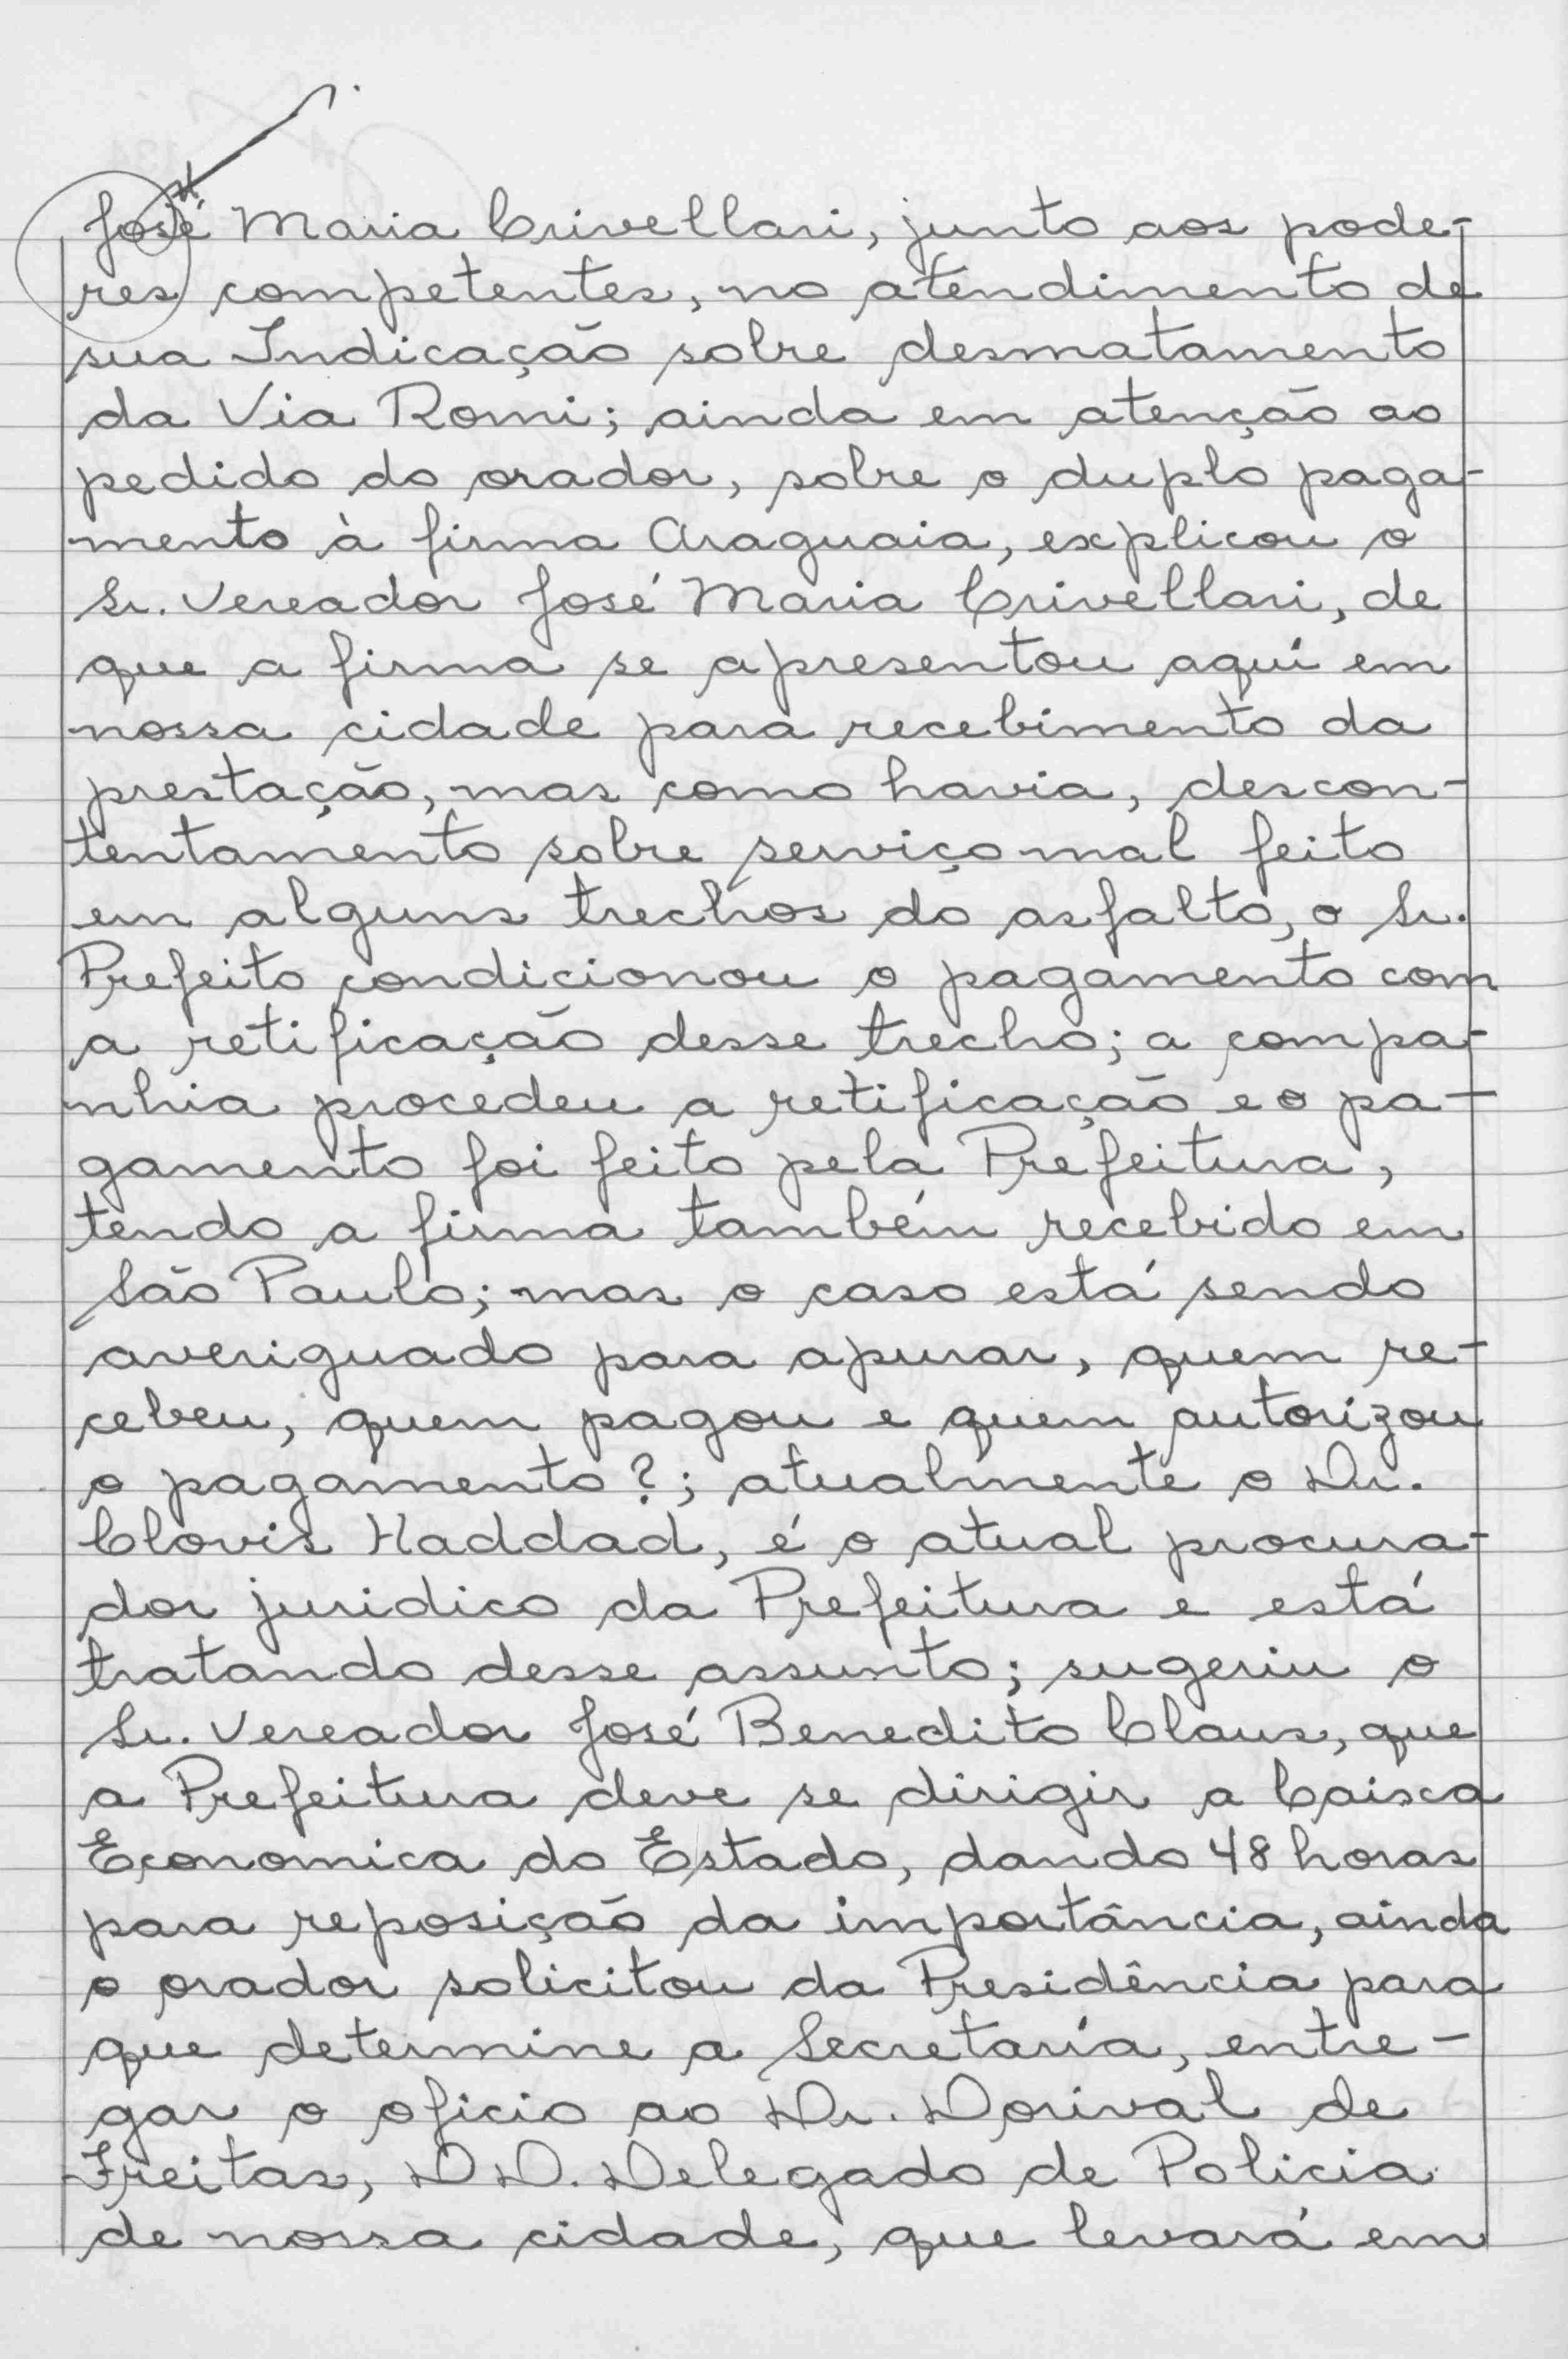 José Maria Crivellari, junto aos pode-
res competentes, no atendimento de
sua Indicação sobre desmatamento
da Via Romi; ainda em atenção ao
pedido do orador, sobre o duplo paga-
mento à firma Araguaia, explicou o
Sr. Vereador José Maria Crivellari, de
que a firma se apresentou aquí em
nossa cidade para recebimento da
prestação, mas como havia, descon-
tentamento sobre serviço mal feito
em alguns trechos do asfalto, o Sr.
Prefeito condicionou o pagamento com
a retificação desse trecho; a compa-
nhia procedeu a retificação e o pa-
gamento foi feito pela Prefeitura,
tendo a firma também recebido em
São Paulo; mas o caso está sendo
averiguado para apurar, quem re-
cebeu, quem pagou e quem autorizou
o pagamento?; atualmente o Dr.
Clovis Haddad, é o atual procura-
dor juridico da Prefeitura e está
tratando desse assunto; sugeriu o
Sr. Vereador José Benedito Claus, que
a Prefeitura deve se dirigir a Caixa
Economica do Estado, dando 48 horas
para reposição da importância, ainda
o orador solicitou da Presidência para
que determine a Secretaría, entre-
gar o oficio ao Dr. Dorival de
Freitas, DD. Delegado de Policia
de nossa cidade, que levará em